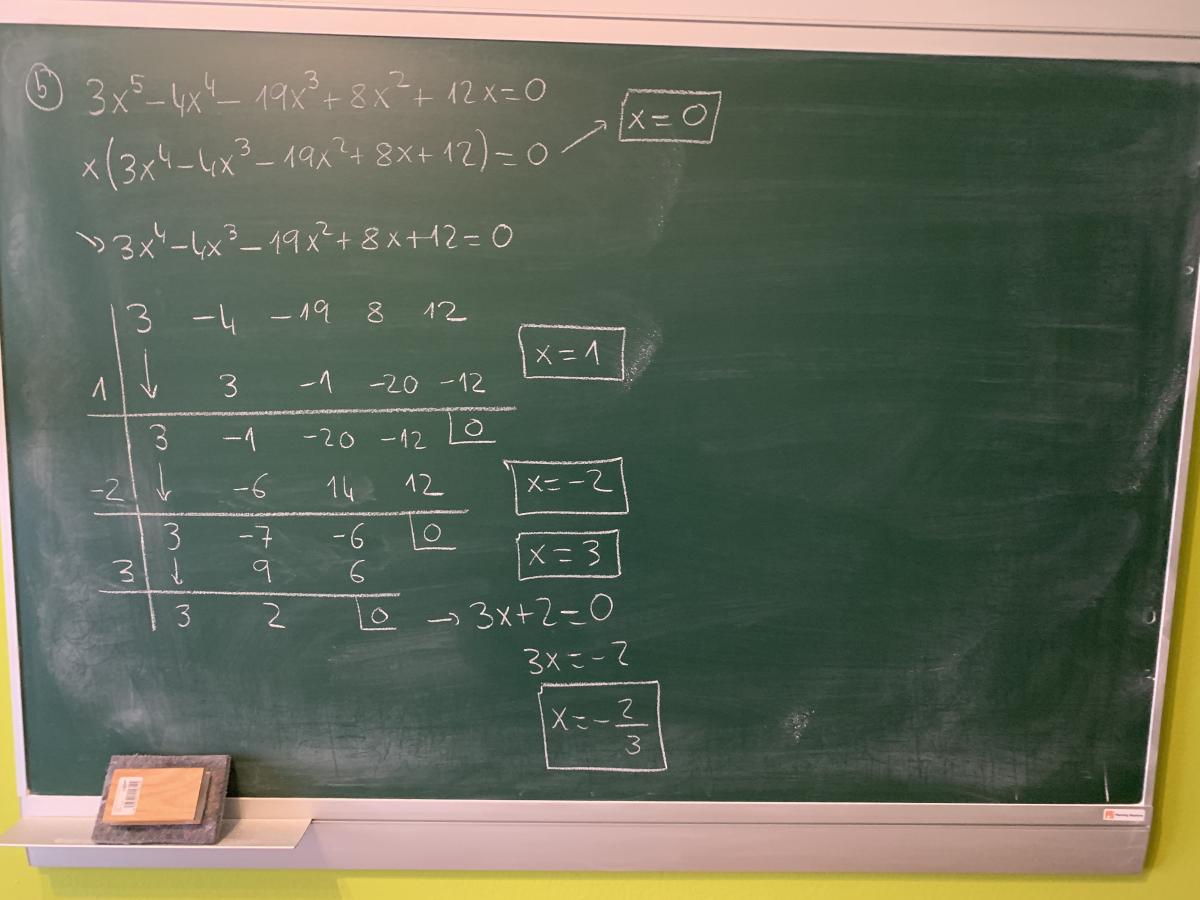 5 3x⁵-4x⁴-19x³+8x²+12x=0
x(3x⁴-4x³-19x²+8x+12)=0 → x=0
→ 3x⁴-4x³-19x²+8x+12=0
3 -4 -19 8 12
x=1
1 ↓ 3 -1 -20 -12
3 -1 -20 -12 0
-2 ↓ -6 14 12
x=-2
3 -7 -6 0
x=3
3 ↓ 9 6
3 2 0 → 3x+2=0
3x=-2
x=-2/3